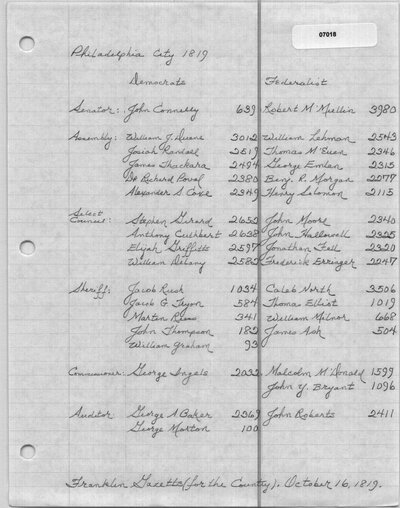 07018
Philadelphia City 1819
Democrats Federalist
Senator: John Connelly 639 Robert M'Mullin 3980
Assembly: William J. Duane 3012 William Lehman 2543
Josiah Randall 2519 Thomas M'Euen 2346
James Thackara 2494 George Emlen 2315
Dr Richard Povall 2380 Benj. R. Morgan 2277
Alexander S Coxe 2349 Henry Solomon 2115
Select Council: Stephen Girard 2652 John Moore 2340
Anthony Cuthbert 2638 John Hallowell 2325
Elijah Griffitts 2597 Jonathan Fell 2320
William Delany 2582 Frederick 2247
Sheriff: Jacob Rush 1034 Caleb North 3506
Jacob G Tryon 584 Thomas Elliot 1019
Martin 341 William Milnor 668
John Thompson 182 James Ash 504
William Graham 93
Commissioner: George Ingels 2032 Malcolm M'Donald 1599
John Y. Bryant 1096
Auditor: George A Baker 2369 John Roberts 2411
George Morton 100
Franklin Gazette (for the County). October 16, 1819.